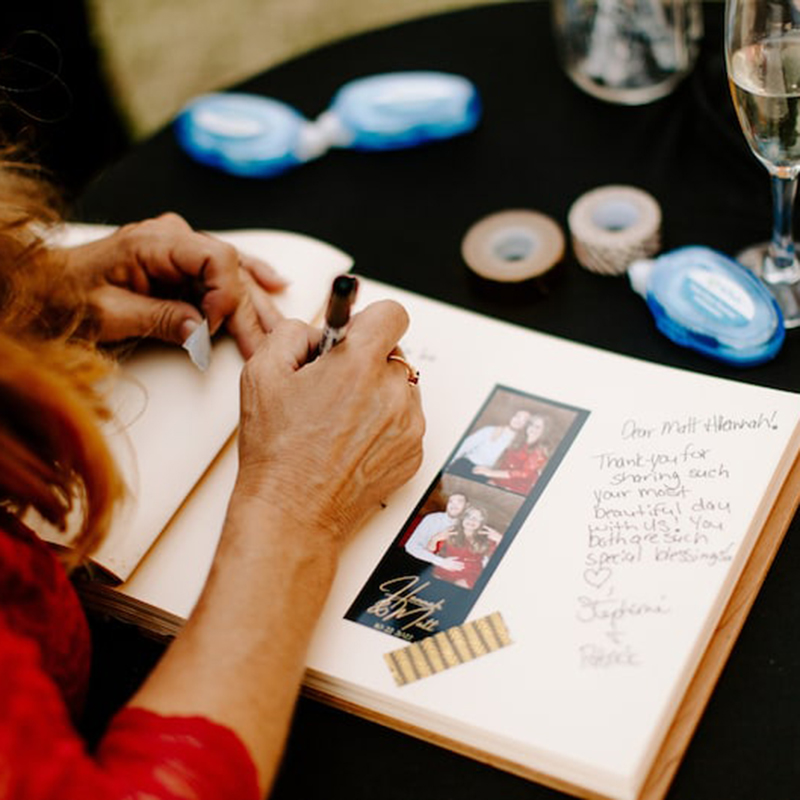 Dear Matt & Hannah!
Thank you for
sharing such
your most
beautiful day
with us! You
both are such
special blessings!
♡,
Stephanie
+
Patrick
Hannah
& Matt